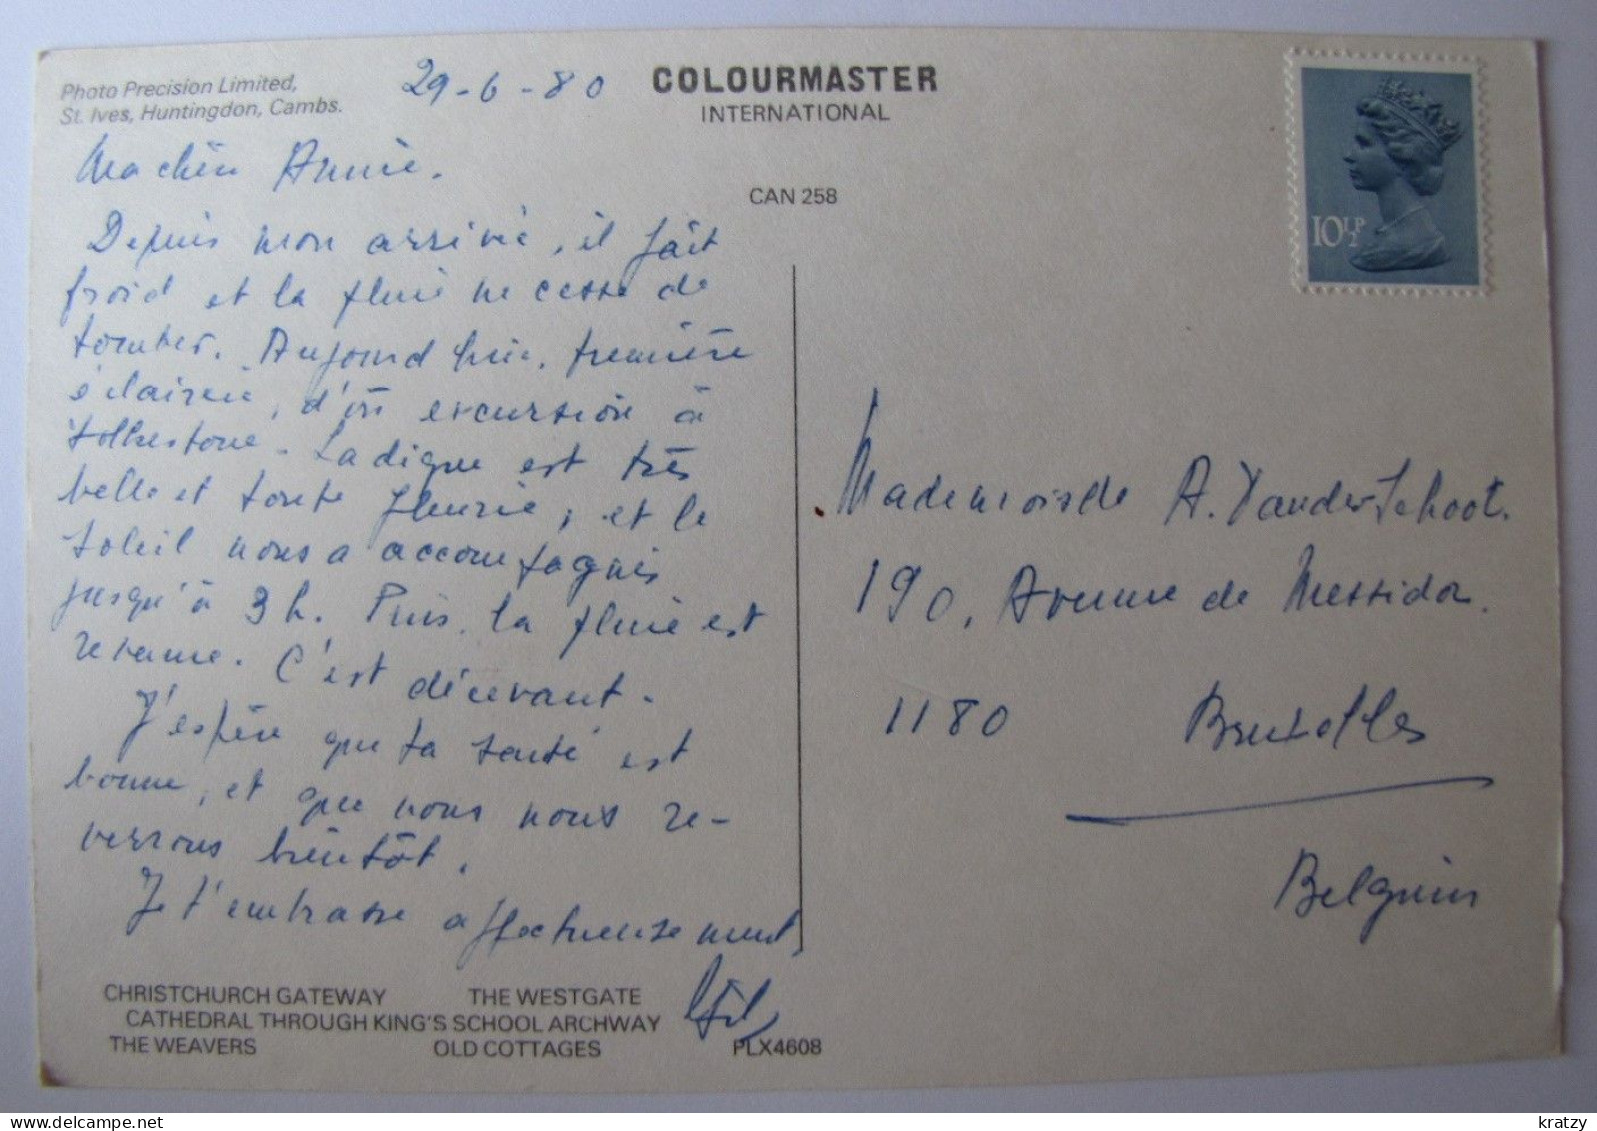 Photo Precision Limited,
St. Ives, Huntingdon, Cambs.
29-6-80
COLOURMASTER
INTERNATIONAL
CAN 258
10½P
Ma chère Annie.
Depuis mon arrivée, il fait
froid et la pluie ne cesse de
tomber. Aujourd'hui, première
éclaircie, d'où excursion à
Folkestone. La digue est très
belle et toute fleurie, et le
soleil nous a accompagnés
jusqu'à 3 h. Puis, la pluie est
revenue. C'est décevant.
J'espère que ta santé est
bonne, et que nous nous re-
verrons bientôt.
Je t'embrasse affectueusement,
Mademoiselle A. Vanderschoot.
190, Avenue de Messidor.
1180 Bruxelles
Belgium
CHRISTCHURCH GATEWAY THE WESTGATE
CATHEDRAL THROUGH KING'S SCHOOL ARCHWAY
THE WEAVERS OLD COTTAGES PLX4608
© kratzy